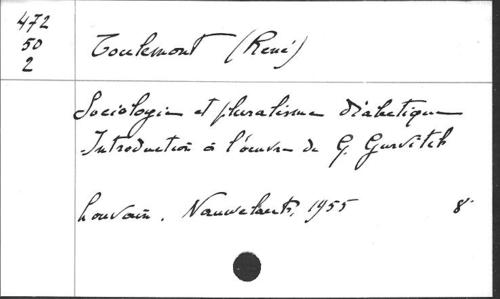 472
50
2
Toulemont (René)
Sociologie et pluralisme dialectique
Introduction à l'œuvre de G. Gurvitch
Louvain. Nauwelaerts, 1955 8°